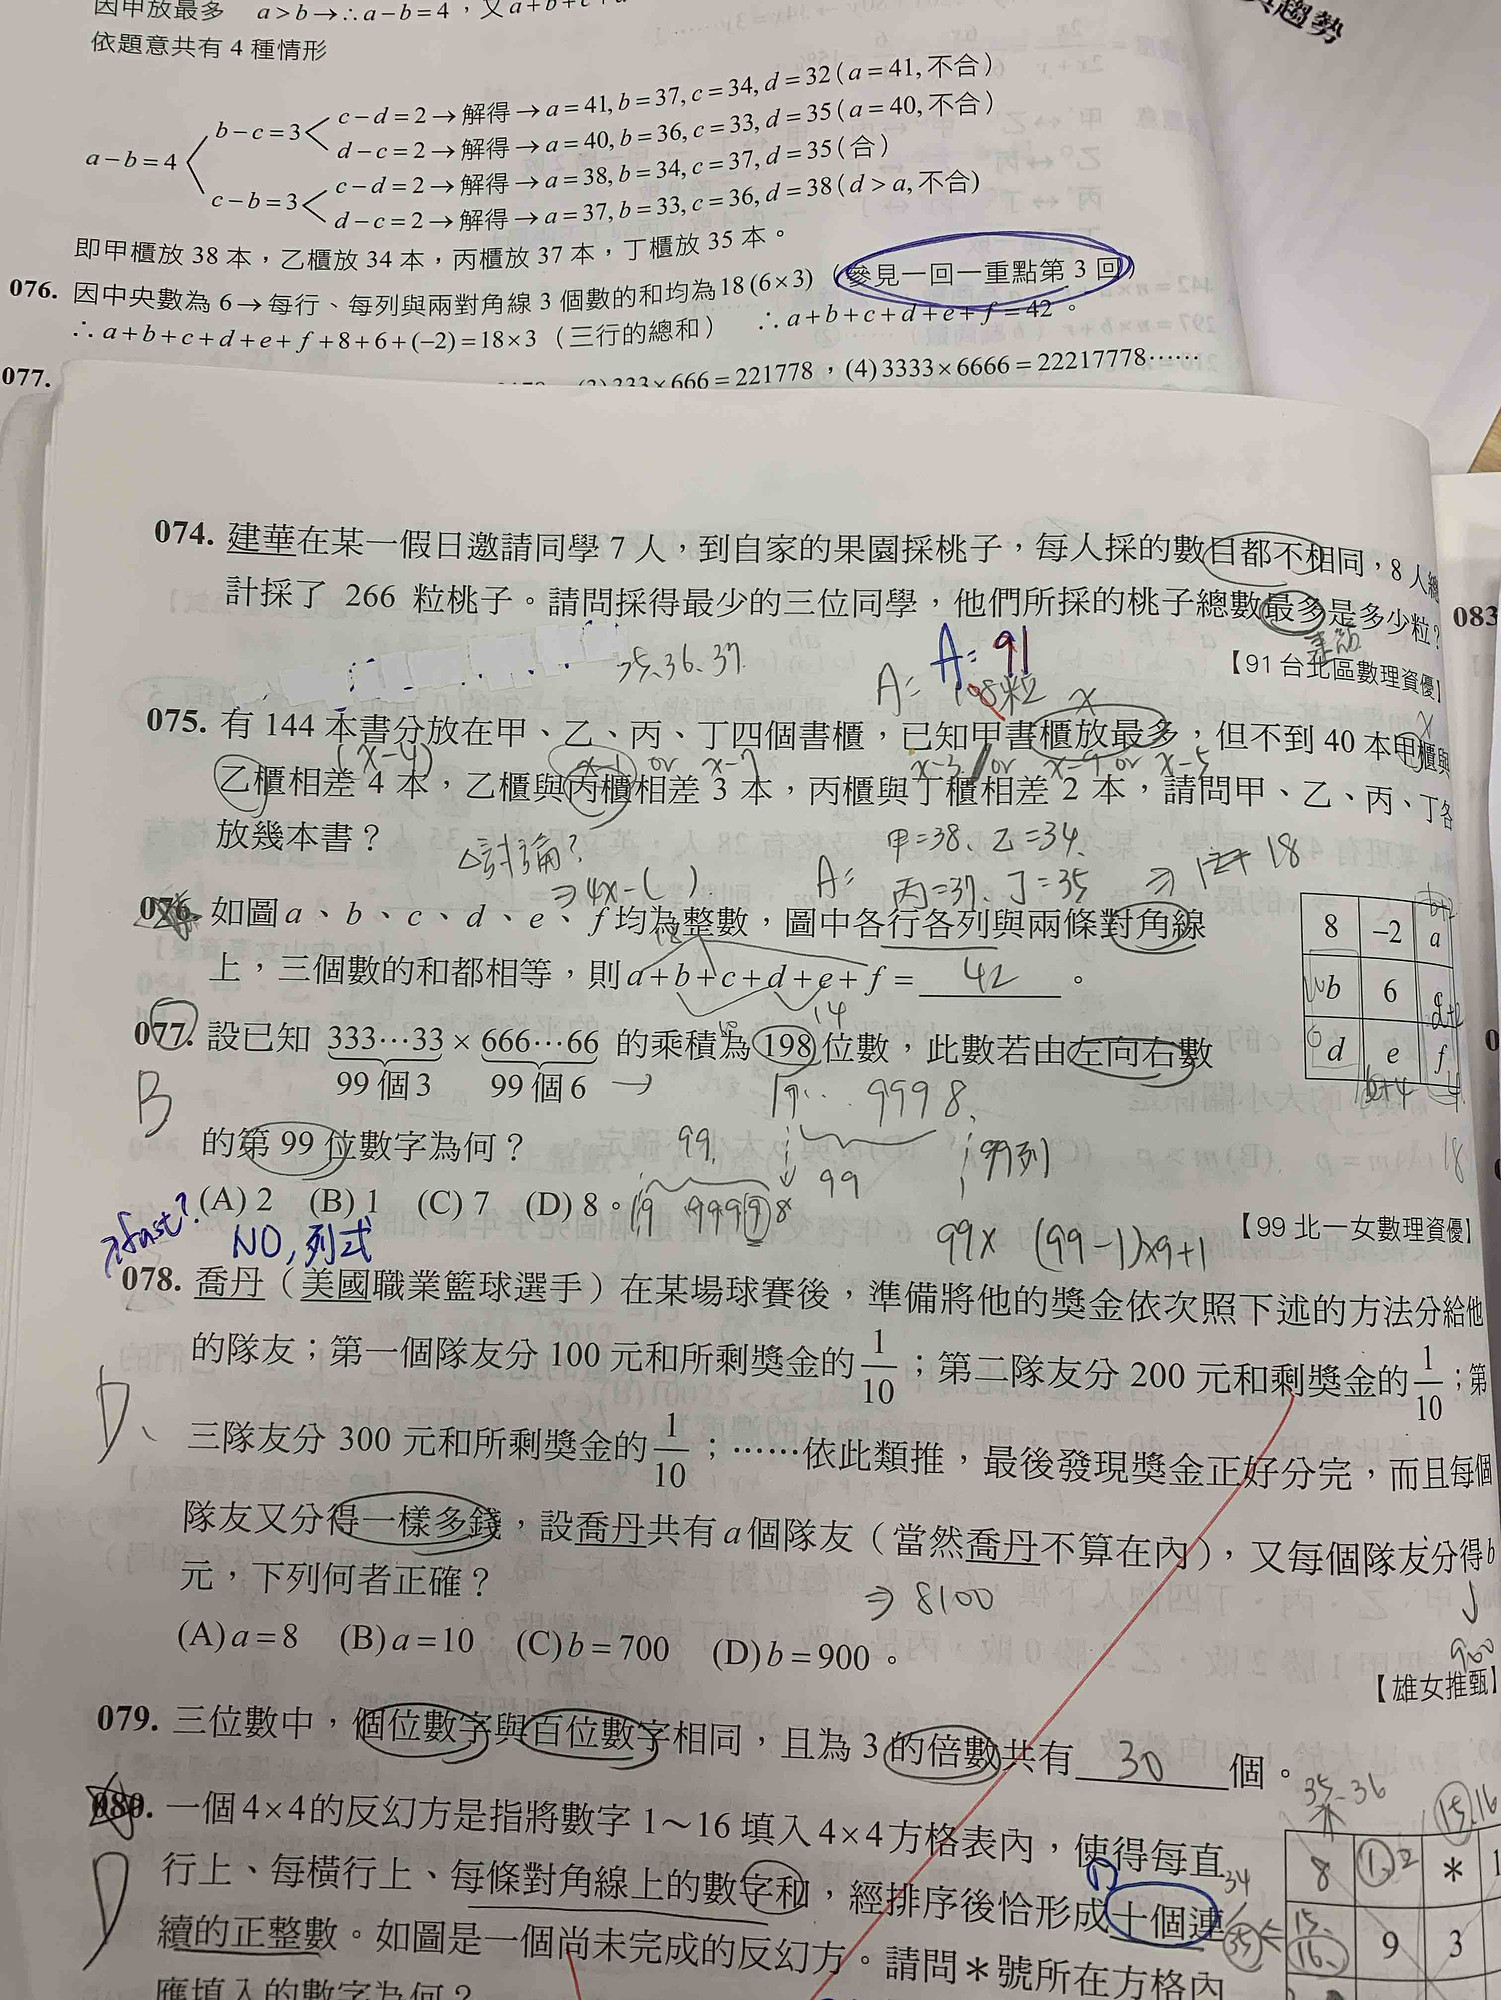 因甲放最多 a>b→∴a−b=4,又a+b+c+
依題意共有 4 種情形
a−b=4
b−c=3
c−d=2→解得→a=41,b=37,c=34,d=32(a=41,不合)
d−c=2→解得→a=40,b=36,c=33,d=35(a=40,不合)
c−b=3
c−d=2→解得→a=38,b=34,c=37,d=35(合)
d−c=2→解得→a=37,b=33,c=36,d=38(d>a,不合)
即甲櫃放 38 本,乙櫃放 34 本,丙櫃放 37 本,丁櫃放 35 本。
076. 因中央數為 6→每行、每列與兩對角線 3 個數的和均為18(6×3)(參見一回一重點第 3 回)
∴a+b+c+d+e+f+8+6+(−2)=18×3(三行的總和) ∴a+b+c+d+e+f=42。
077.
233×666=221778,(4)3333×6666=22217778……
趨勢
074. 建華在某一假日邀請同學 7 人,到自家的果園採桃子,每人採的數目都不相同,8 人總
計採了 266 粒桃子。請問採得最少的三位同學,他們所採的桃子總數最多是多少粒?
083
35、36、37
A=91
A= 108粒
【91 台北區數理資優】
075. 有 144 本書分放在甲、乙、丙、丁四個書櫃,已知甲書櫃放最多,但不到 40 本甲櫃與
x
x
(x−4)
x−1 or x−7
x−3 or x−9 or x−5
乙櫃相差 4 本,乙櫃與丙櫃相差 3 本,丙櫃與丁櫃相差 2 本,請問甲、乙、丙、丁各
放幾本書?
討論?
⇒4x−( )
A= 甲=38、乙=34、
丙=37、丁=35
⇒ 18
076. 如圖a、b、c、d、e、f均為整數,圖中各行各列與兩條對角線
上,三個數的和都相等,則a+b+c+d+e+f= 42 。
8 −2 a
b 6 c
d e f
14
18
077. 設已知 333…33×666…66 的乘積為 198 位數,此數若由左向右數
99 個 3 99 個 6
B
的第 99 位數字為何?
9998
99
99
99列
(A) 2 (B) 1 (C) 7 (D) 8。
【99 北一女數理資優】
fast?
NO,列式
99× (99−1)×9+1
078. 喬丹(美國職業籃球選手)在某場球賽後,準備將他的獎金依次照下述的方法分給他
的隊友;第一個隊友分 100 元和所剩獎金的1/10;第二隊友分 200 元和剩獎金的1/10;第
D、
三隊友分 300 元和所剩獎金的1/10;……依此類推,最後發現獎金正好分完,而且每個
隊友又分得一樣多錢,設喬丹共有a個隊友(當然喬丹不算在內),又每個隊友分得b
元,下列何者正確?
⇒8100
(A)a=8 (B)a=10 (C)b=700 (D)b=900。
900
【雄女推甄】
079. 三位數中,個位數字與百位數字相同,且為 3 的倍數共有 30 個。
35、36
15、16
080. 一個4×4的反幻方是指將數字 1~16 填入4×4方格表內,使得每直
D
行上、每橫行上、每條對角線上的數字和,經排序後恰形成十個連
34
35
續的正整數。如圖是一個尚未完成的反幻方。請問*號所在方格內
應填入的數字為何?
8 1、2 * 1
15、16、 9 3